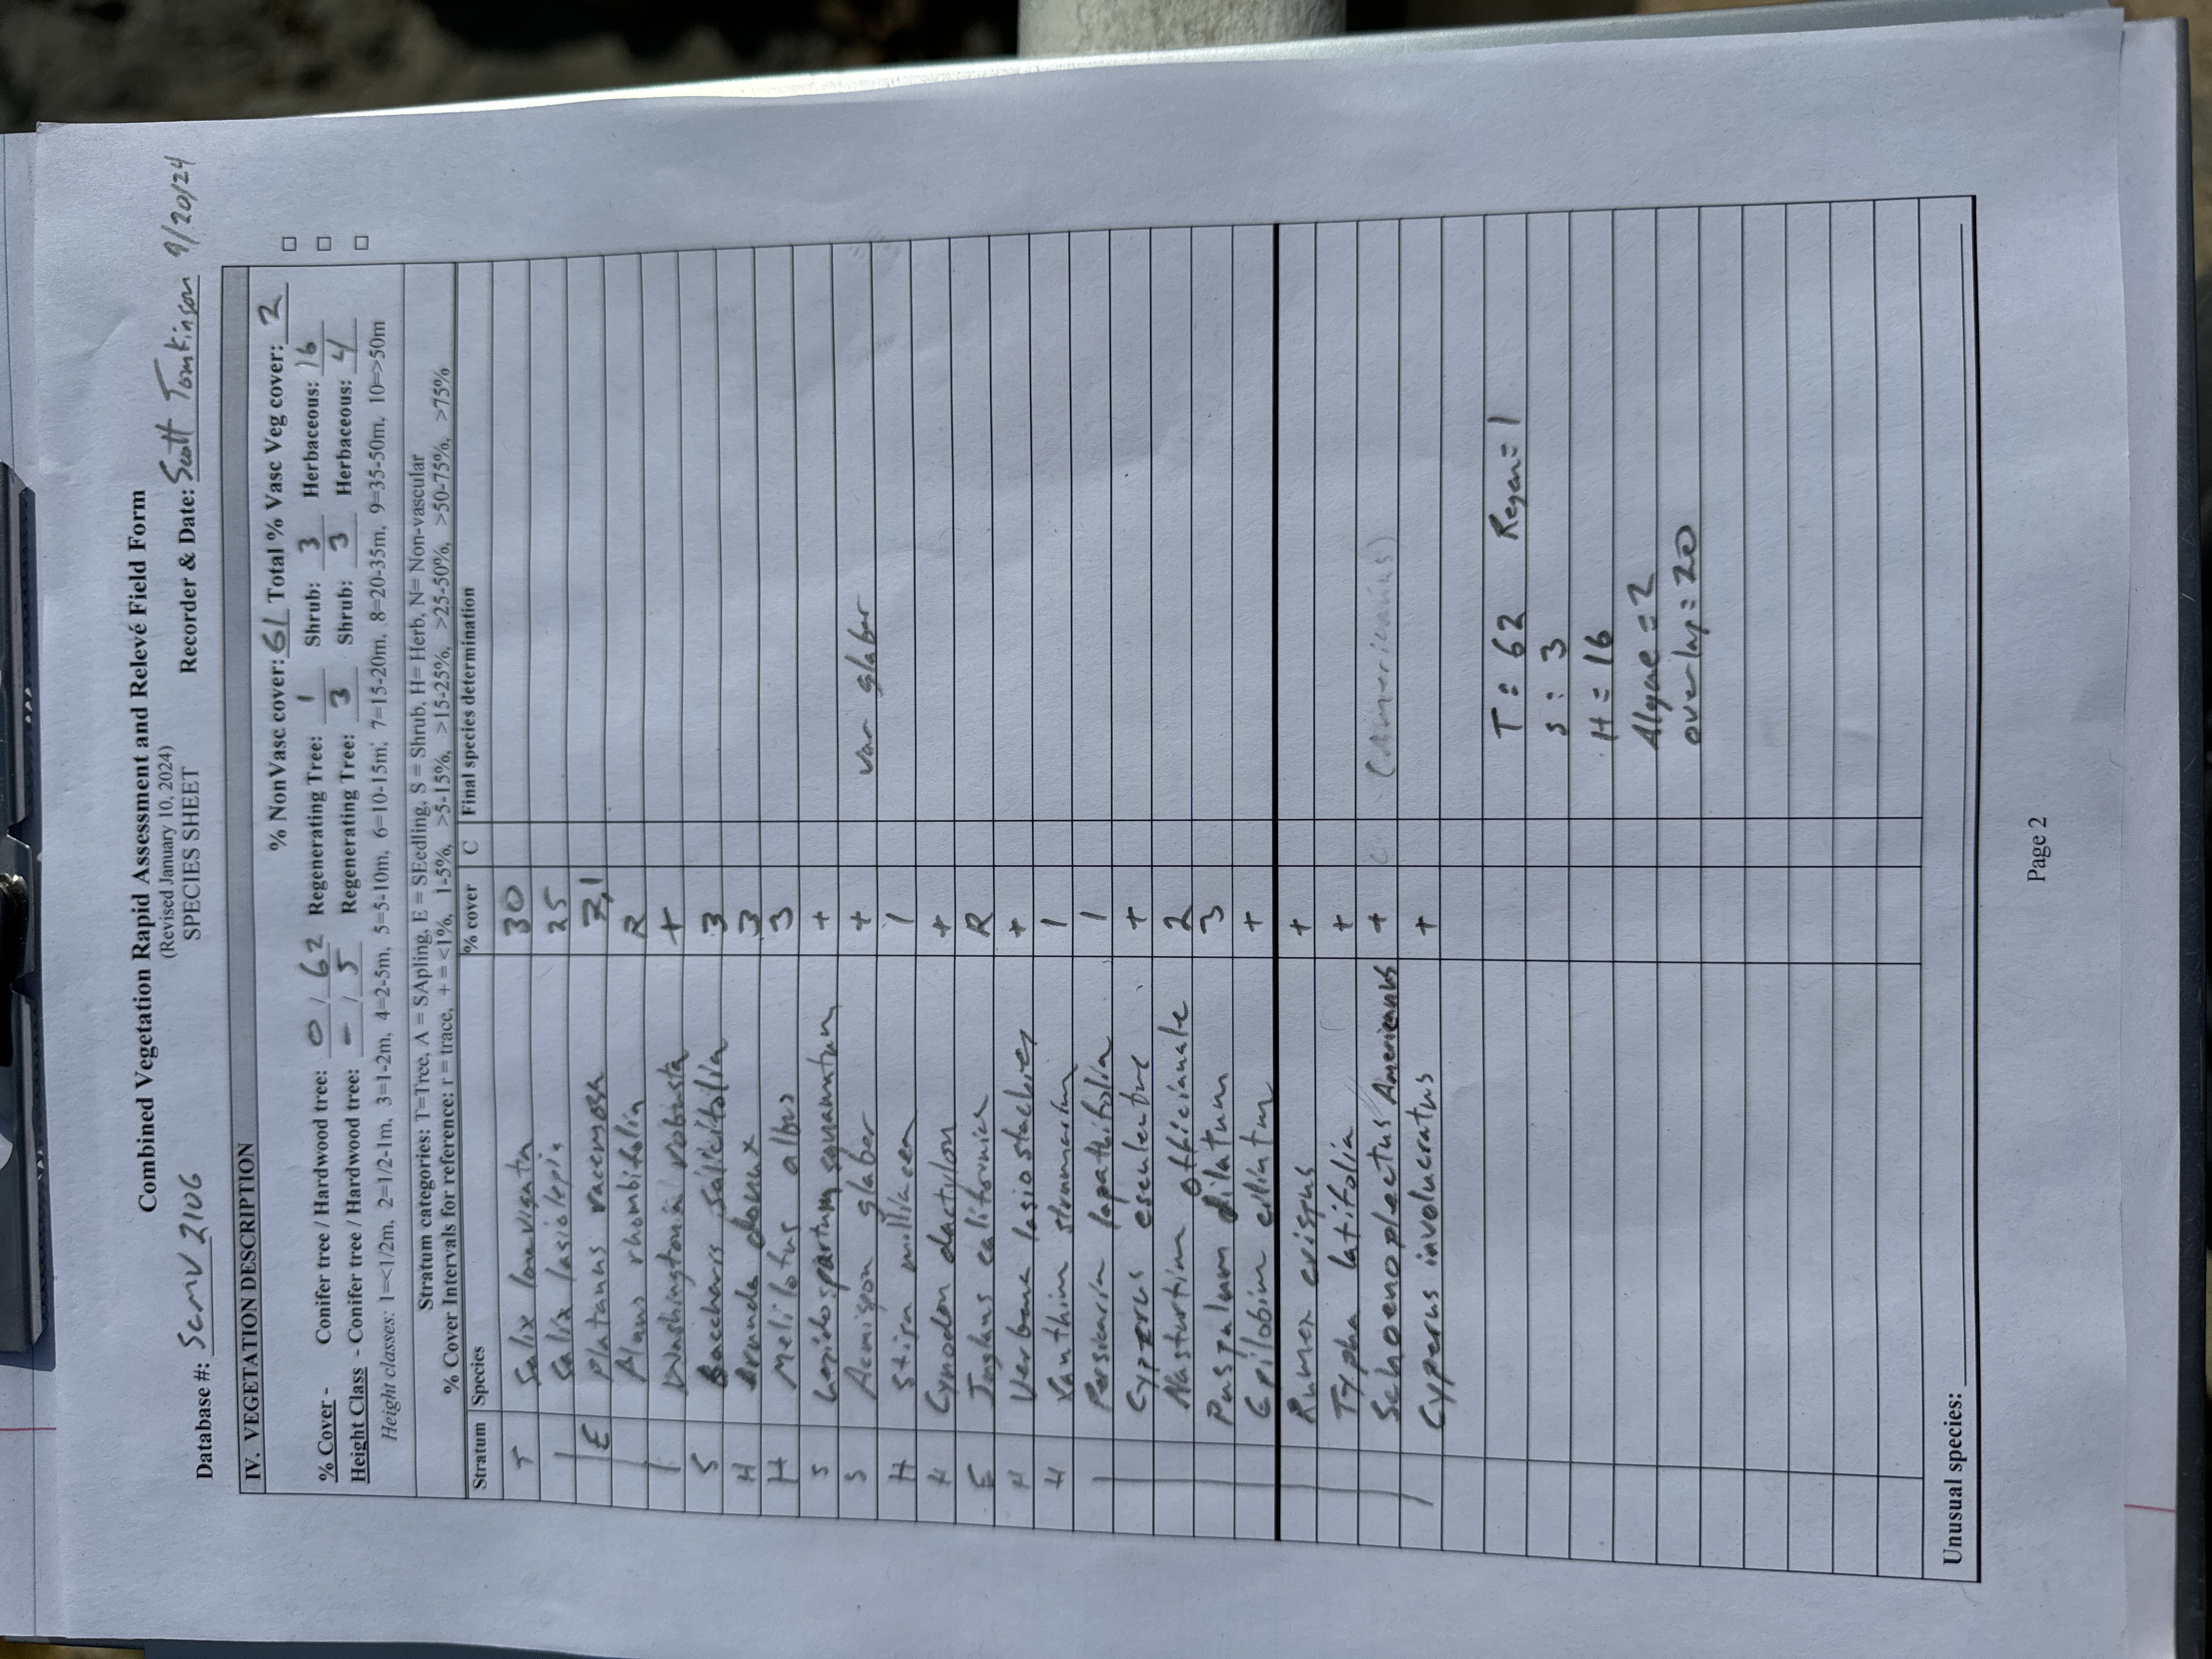 Combined Vegetation Rapid Assessment and Relevé Field Form
(Revised January 10, 2024)
SPECIES SHEET
Database #: SCMV 2106 Recorder & Date: Scott Tomkinson 9/20/24
IV. VEGETATION DESCRIPTION
% NonVasc cover: 61 Total % Vasc Veg cover: 2
% Cover - Conifer tree / Hardwood tree: 0 / 62 Regenerating Tree: 1 Shrub: 3 Herbaceous: 16
Height Class - Conifer tree / Hardwood tree: - / 5 Regenerating Tree: 3 Shrub: 3 Herbaceous: 4
Height classes: 1=<1/2m, 2=1/2-1m, 3=1-2m, 4=2-5m, 5=5-10m, 6=10-15m, 7=15-20m, 8=20-35m, 9=35-50m, 10=>50m
Stratum categories: T=Tree, A = SApling, E = SEedling, S = Shrub, H= Herb, N= Non-vascular
% Cover Intervals for reference: r = trace, + = <1%, 1-5%, >5-15%, >15-25%, >25-50%, >50-75%, >75%
Stratum Species % cover C Final species determination
T Salix laevigata 30
Salix lasiolepis 25
E Platanus racemosa 7,1
Alnus rhombifolia R
Washingtonia robusta +
S Baccharis salicifolia 3
H Arundo donax 3
H Melilotus albus 3
S Lepidospartum squamatum +
S Acmispon glaber + var glaber
H Stipa miliacea 1
H Cynodon dactylon +
E Juglans californica R
H Verbena lasiostachys +
H Xanthium strumarium 1
Persicaria lapathifolia 1
Cyperus esculentus +
Nasturtium officianale 2
Paspalum dilatum 3
Epilobium ciliatum +
Rumex crispus +
Typha latifolia +
Schoenoplectus Americanus + (Americanus)
Cyperus involucratus +
T: 62 Regen=1
S: 3
H=16
Algae=2
overlap=20
Unusual species:
Page 2